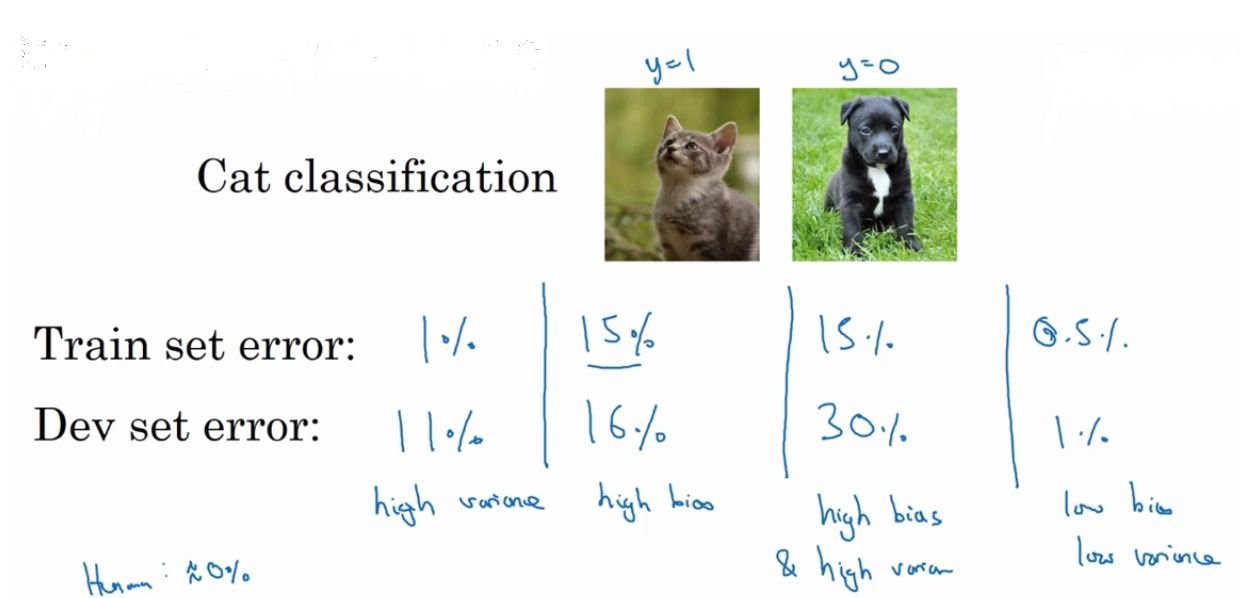 y=1 y=0
Cat classification
Train set error: 1% 15% 15% 0.5%
Dev set error: 11% 16% 30% 1%
high variance high bias high bias low bias
& high varian low variance
Human: ≈0%